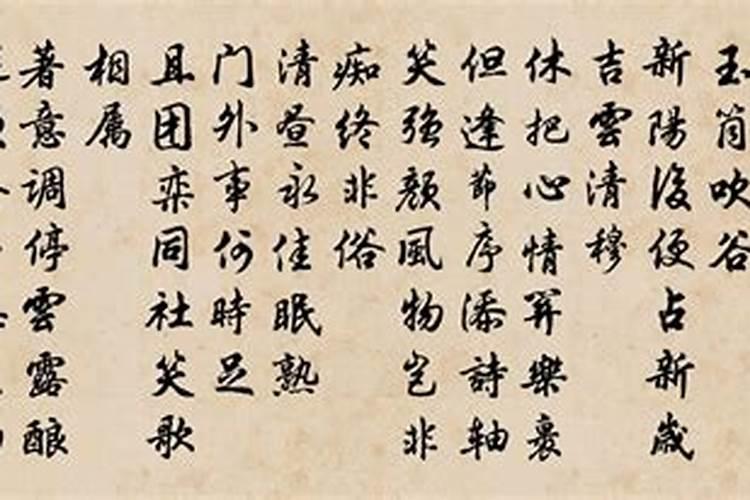 玉筒吹谷
新陽後便占新歲
吉雲清穆
休把心情樂裏
但逢節序添詩軸
笑強顏風物豈非
痴終非俗
清昼永佳眠熟
门外事何時足
且团栾同社笑歌
相属
著意调停雲露酿